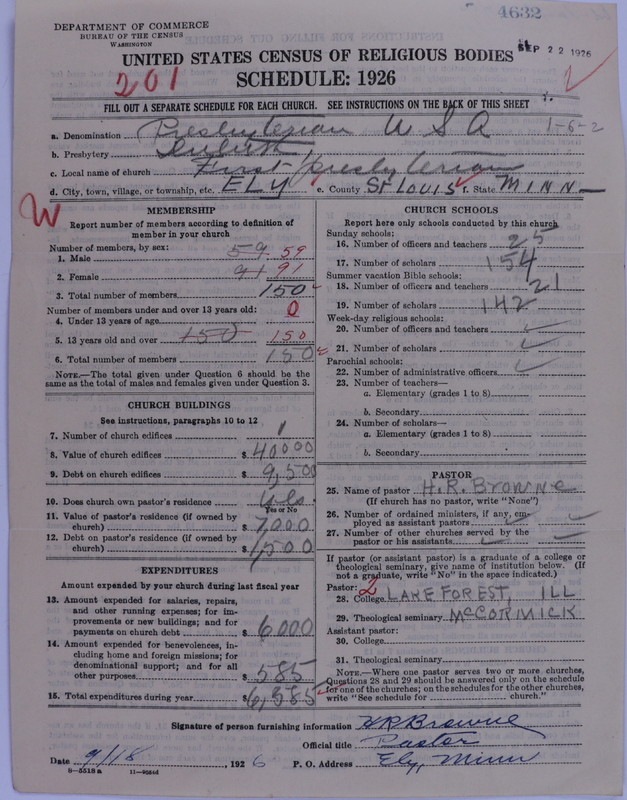 4632
DEPARTMENT OF COMMERCE
BUREAU OF THE CENSUS
WASHINGTON
UNITED STATES CENSUS OF RELIGIOUS BODIES
SEP 22 1926
201
SCHEDULE: 1926
FILL OUT A SEPARATE SCHEDULE FOR EACH CHURCH. SEE INSTRUCTIONS ON THE BACK OF THIS SHEET
a. Denomination Presbyterian U S A 1-6-2
b. Presbytery Duluth
c. Local name of church First Presbyterian
d. City, town, village, or township, etc. ELY e. County St LOUIS f. State MINN
W
MEMBERSHIP
Report number of members according to definition of
member in your church
Number of members, by sex:
1. Male 59 59
2. Female 91 91
3. Total number of members 150
Number of members under and over 13 years old:
4. Under 13 years of age 0
5. 13 years old and over 150 150
6. Total number of members 150
NOTE.—The total given under Question 6 should be the
same as the total of males and females given under Question 3.
CHURCH BUILDINGS
See instructions, paragraphs 10 to 12
7. Number of church edifices 1
8. Value of church edifices $ 40000
9. Debt on church edifices $ 9,500
10. Does church own pastor's residence Yes
Yes or No
11. Value of pastor's residence (if owned by
church) $ 7,000
12. Debt on pastor's residence (if owned by
church) $ 1,500
EXPENDITURES
Amount expended by your church during last fiscal year
13. Amount expended for salaries, repairs,
and other running expenses; for im-
provements or new buildings; and for
payments on church debt $ 6,000
14. Amount expended for benevolences, in-
cluding home and foreign missions; for
denominational support; and for all
other purposes $ 585
15. Total expenditures during year $ 6,585
CHURCH SCHOOLS
Report here only schools conducted by this church
Sunday schools:
16. Number of officers and teachers 25
17. Number of scholars 154
Summer vacation Bible schools:
18. Number of officers and teachers 21
19. Number of scholars 142
Week-day religious schools:
20. Number of officers and teachers
21. Number of scholars
Parochial schools:
22. Number of administrative officers
23. Number of teachers—
a. Elementary (grades 1 to 8)
b. Secondary
24. Number of scholars—
a. Elementary (grades 1 to 8)
b. Secondary
PASTOR
25. Name of pastor H.R. Browne
(If church has no pastor, write "None")
26. Number of ordained ministers, if any, em-
ployed as assistant pastors
27. Number of other churches served by the
pastor or his assistants
If pastor (or assistant pastor) is a graduate of a college or
theological seminary, give name of institution below. (If
not a graduate, write "No" in the space indicated.)
Pastor: 2
28. College LAKE FOREST, ILL
29. Theological seminary McCORMICK
Assistant pastor:
30. College
31. Theological seminary
NOTE.—Where one pastor serves two or more churches,
Questions 28 and 29 should be answered only on the schedule
for one of the churches; on the schedules for the other churches,
write "See schedule for church."
Signature of person furnishing information H R Browne
Official title Pastor
Date 9/18, 1926 P. O. Address Ely, Minn
8—5518 a